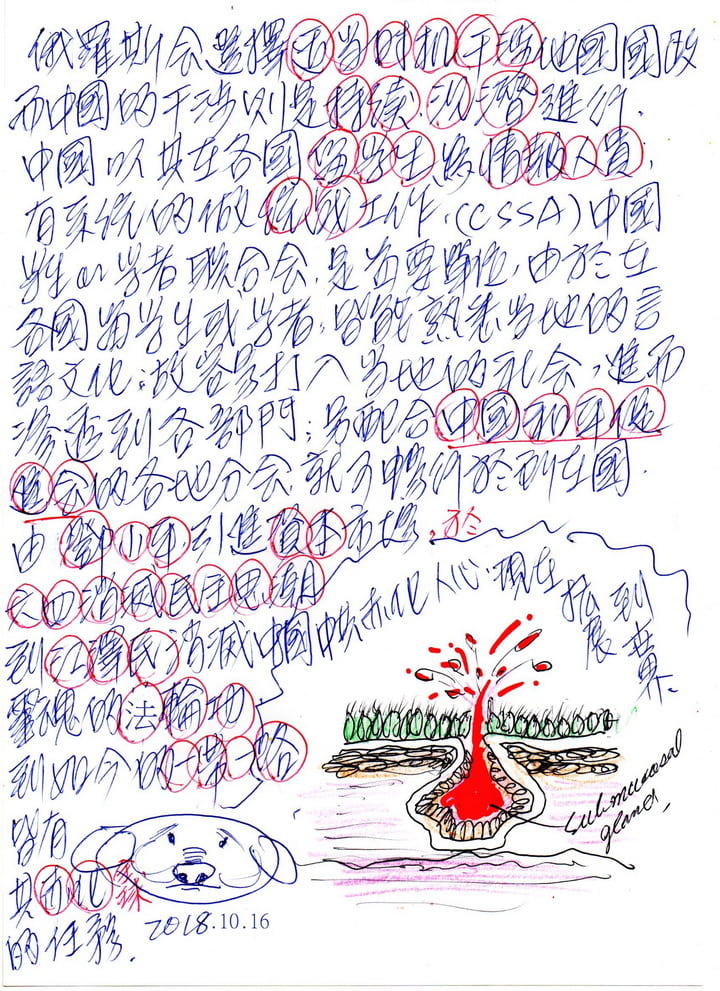 俄羅斯会選擇适當时机干涉他國國政
而中國的干涉则是持续.沈潛進行.
中國以其在各國留学生為情報人員,
有系統的做統战工作.(CSSA)中國
学生or学者聯合会.是首要單位,由於在
各國留学生或学者,皆能熟悉当地的言
語文化,故容易打入当地的社会,進而
滲透到各部門;另配合中國和平促
進会的各地分会.就可暢行於所在國.
由鄧小平引進資本市場,於
六四消滅民主思潮
到江澤民消滅中國
靈魂的法輪功
到如今的一帶一路
皆有
其赤化
的任務.
中共赤化人心.現在拓展到世界.
submucosal
gland,
2018.10.16